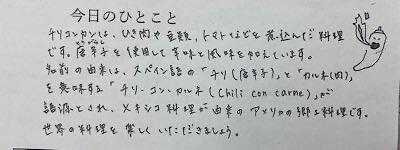 今日のひとこと
チリコンカンは、ひき肉や豆類、トマトなどを煮込んだ料理
です。唐辛子を使用して辛味と風味を加えています。
名前の由来は、スペイン語の「チリ(唐辛子)」と「カルネ(肉)」
を意味する「チリ・コン・カルネ(chili con carne)」が
語源とされ、メキシコ料理が由来のアメリカの郷土料理です。
世界の料理を楽しくいただきましょう。